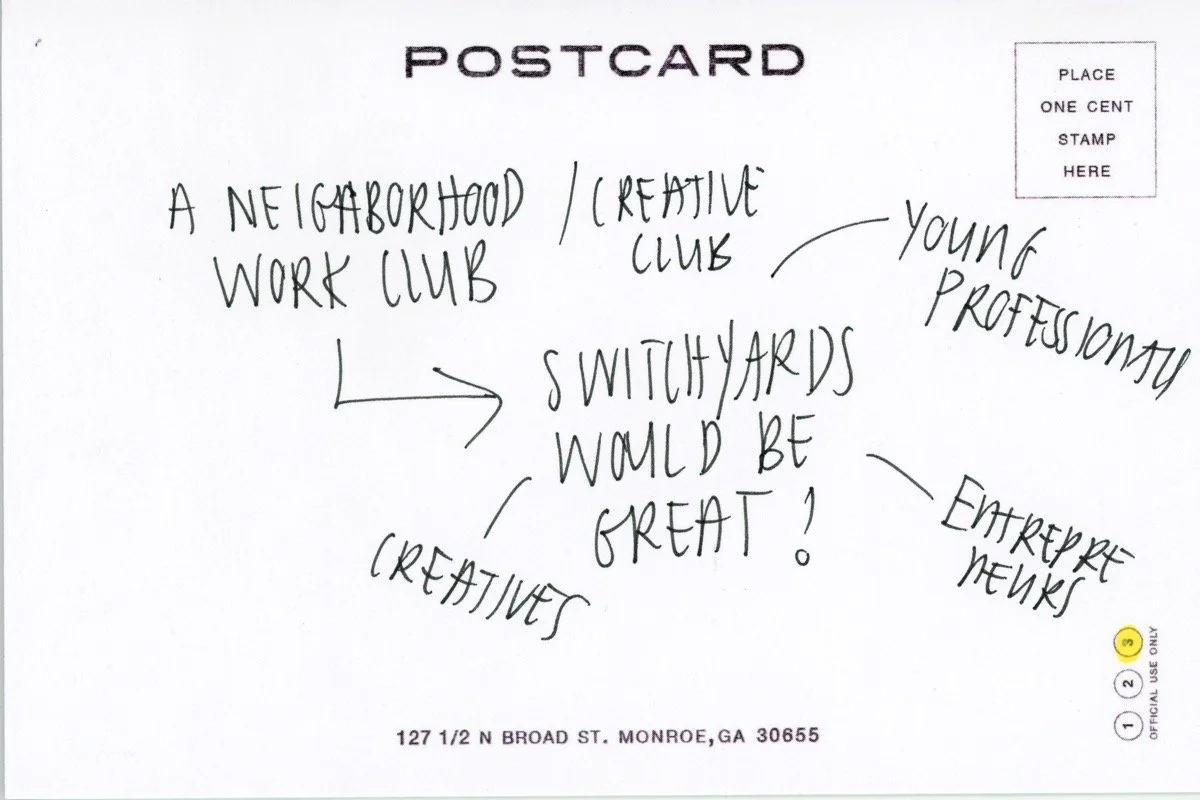 POSTCARD
PLACE
ONE CENT
STAMP
HERE
A NEIGHBORHOOD / CREATIVE
WORK CLUB
CLUB
YOUNG
PROFESSIONALS
SWITCHYARDS
WOULD BE
GREAT!
CREATIVES
ENTREPRE
NEURS
127 1/2 N BROAD ST. MONROE, GA 30655
1 2 3
OFFICIAL USE ONLY